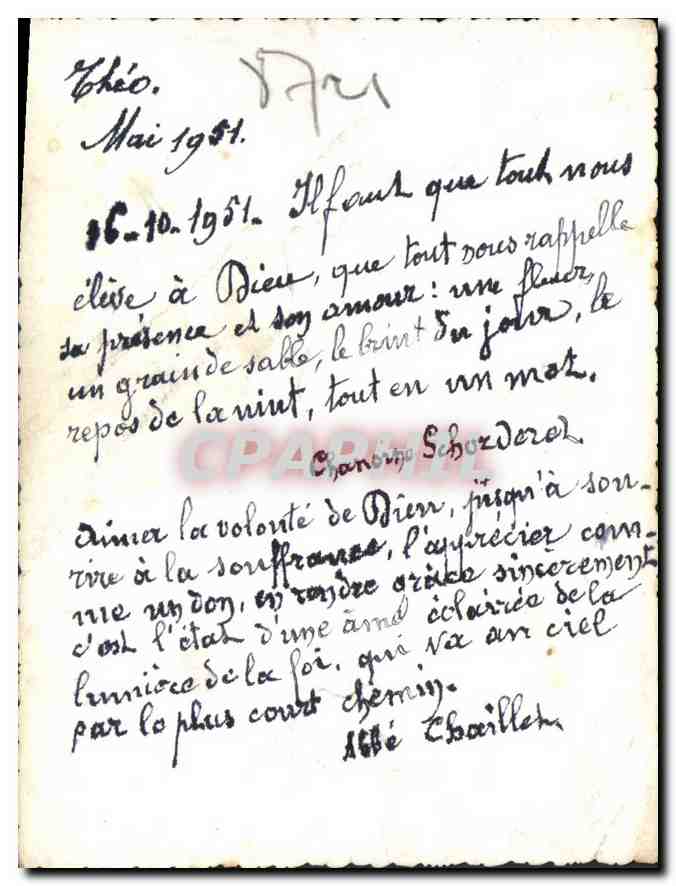 Théo.
Mai 1951.
16-10-1951. Il faut que tout nous
élève à Dieu, que tout nous rappelle
sa présence et son amour: une fleur,
un grain de sable, le bruit du jour, le
repos de la nuit, tout en un mot.
Chanoine Schorderet.
Aimer la volonté de Dieu, jusqu'à sou-
rire à la souffrance, l'apprécier com-
me un don, en rendre grâce sincèrement
c'est l'état d'une âme éclairée de la
lumière de la foi, qui va au ciel
par le plus court chemin.
Abbé Chaillet.
CPAPHIL